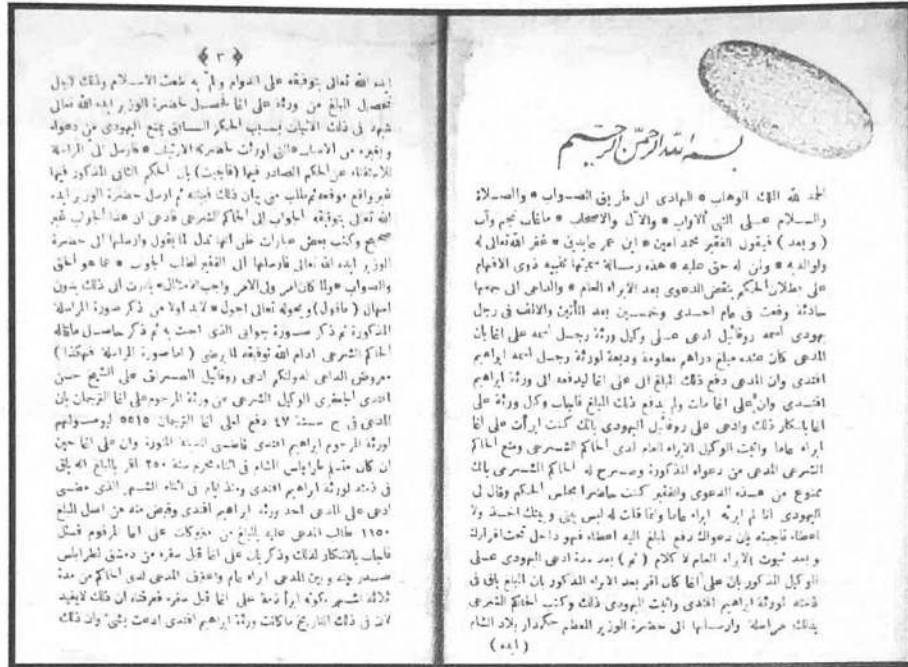 بسم الله الرحمن الرحيم
الحمد لله الملك الوهاب * الهادى الى طريق الصواب * والصلاة
والسلام على النبى الاواب * والآل والاصحاب * ماغاب نجم وآب
( وبعد ) فيقول الفقير محمد امين * ابن عمر عابدين * غفر الله تعالى له
ولوالديه * ولمن له حق عليه * هذه رسالة سميتها تنبيه ذوى الافهام
على بطلان الحكم بنقض الدعوى بعد الابراء العام * والداعى الى جمعها
حادثة وقعت فى عام احدى وخمسين بعد المأتين والالف فى رجل
يهودى اسمه روفائيل ادعى على وكيل ورثة رجل اسمه على اغا بان
المدعى كان عنده مبلغ دراهم معلومة وديعة لورثة رجل اسمه ابراهيم
افندى وان المدعى دفع ذلك المبلغ الى على اغا ليدفعه الى ورثة ابراهيم
افندى وان على اغا مات ولم يدفع ذلك المبلغ فاجاب وكيل ورثة على
اغا بانكار ذلك وادعى على روفائيل اليهودى بانك كنت ابرأت على اغا
ابراء عاما واثبت الوكيل الابراء العام لدى الحاكم الشرعى ومنع الحاكم
الشرعى المدعى من دعواه المذكورة وصرح له الحاكم الشرعى بانك
ممنوع من هذه الدعوى والفقير كنت حاضرا مجلس الحكم وقال لى
اليهودى انا لم ابرئه ابراء عاما وانما قلت له ليس بينى وبينك اخذ ولا
اعطاء فاجبته بان دعواك دفع المبلغ اليه اعطاء فهو داخل تحت اقرارك
وبعد ثبوت الابراء العام لا كلام ( ثم ) بعد مدة ادعى اليهودى على
الوكيل المذكور بان على اغا كان اقر بعد الابراء المذكور بان المبلغ باق فى
ذمته لورثة ابراهيم افندى واثبت اليهودى ذلك وكتب الحاكم الشرعى
بذلك مراسلة وارسلها الى حضرة الوزير المعظم حكمدار بلاد الشام
( ايده )
﴿ ٣ ﴾
ايده الله تعالى بتوفيقه على الدوام ولم به شعث الاسلام وذلك لاجل
تحصيل المبلغ من ورثة على اغا فحصل لحضرة الوزير ايده الله تعالى
شبهة فى ذلك الاثبات بسبب الحكم السابق بمنع اليهودى من دعواه
وبغيره من الاسباب التى اورثت لحضرته الارتياب * فارسل الىّ المراسلة
للاستفتاء عن الحكم الصادر فيها ( فاجبت ) بان الحكم الثانى المذكور فيها
غير واقع موقعه ثم طلب منى بيان ذلك فبينته ثم ارسل حضرة الوزير ايده
الله تعالى بتوفيقه الجواب الى الحاكم الشرعى فادعى ان هذا الجواب غير
صحيح وكتب بعض عبارات ظن انها تدل لما يقول وارسلها الى حضرة
الوزير ايده الله تعالى فارسلها الى الفقير لطلب الجواب * عما هو الحق
والصواب * ولما كان امر ولى الامر واجب الامتثال * بادرت الى ذلك بدون
امهال ( فاقول ) وبحوله تعالى اجول * لابد اولا من ذكر صورة المراسلة
المذكورة ثم ذكر صورة جوابى الذى اجبت به ثم ذكر حاصل ماقاله
الحاكم الشرعى ادام الله توفيقه لما يرضى ( اما صورة المراسلة فهكذا )
معروض الداعى لدولتكم ادعى روفائيل الصعراق على الشيخ حسن
افندى الوكيل الشرعى عن ورثة المرحوم على اغا الترجمان بان
المدعى فى ج سنة ٤٧ دفع لعلى اغا الترجمان ٥٥١٥ ليوصلهم
لورثة المرحوم ابراهيم افندى قاضى المدينة المنورة وان على اغا حين
ان كان متسلم طرابلس الشام فى اثناء محرم سنة ٢٥٠ اقر بالمبلغ انه باق
فى ذمته لورثة ابراهيم افندى ومنذ ايام فى اثناء الشهر الذى مضى
ادعى على المدعى احد ورثة ابراهيم افندى وقبض منه من اصل المبلغ
١١٥٠ طالب المدعى عليه بالمبلغ من متروكات على اغا المرقوم فسئل
فاجاب بالانكار لذلك وذكر بان على اغا قبل سفره من دمشق لطرابلس
صدر بينه وبين المدعى ابراء عام واعترف المدعى لدى الحاكم من مدة
ثلاثة اشهر بكونه ابرأ ذمة على اغا قبل سفره فعرفناه ان ذلك لايفيد
لان فى ذلك التاريخ ماكانت ورثة ابراهيم افندى ادعت بشئ وان ذلك